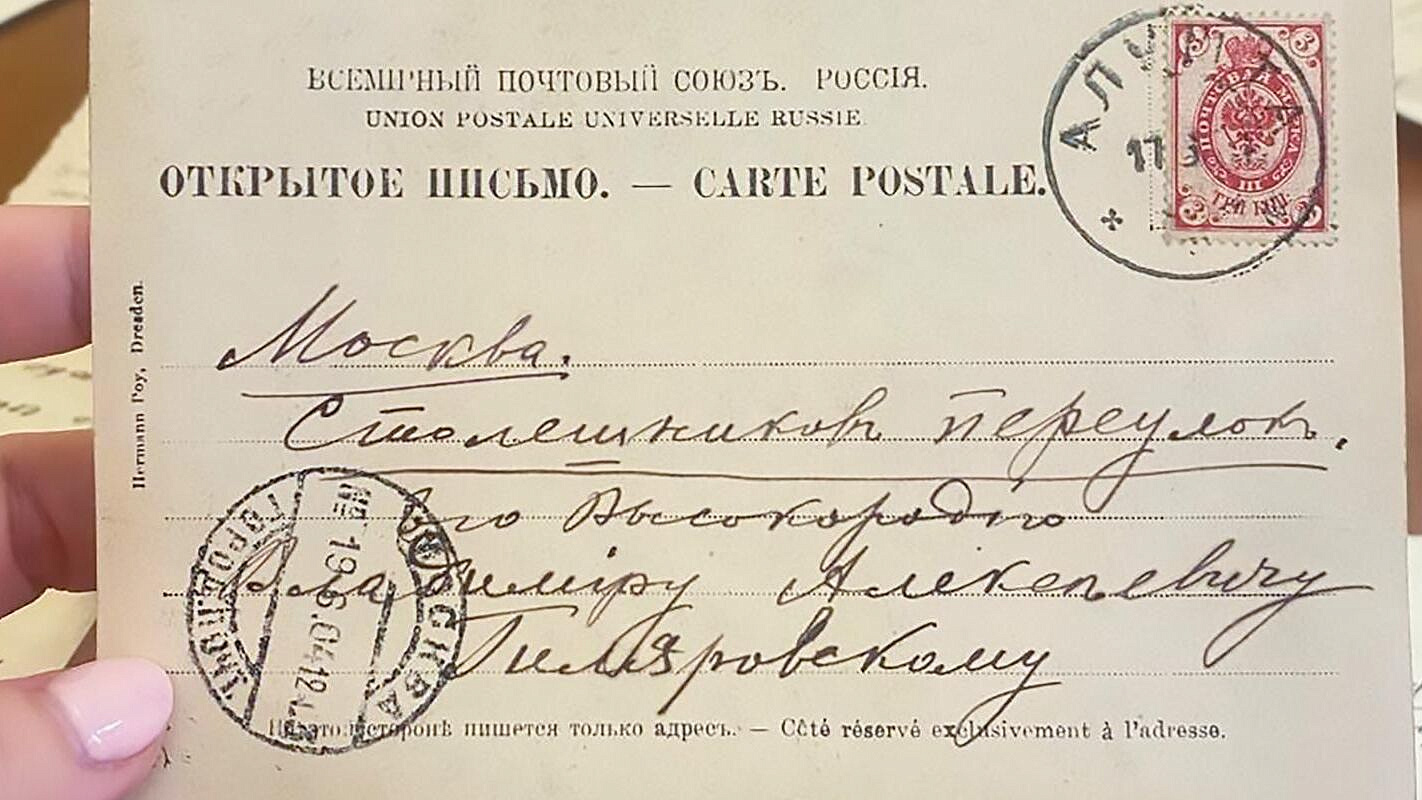 ВСЕМІРНЫЙ ПОЧТОВЫЙ СОЮЗЪ. РОССІЯ.
UNION POSTALE UNIVERSELLE RUSSIE.
ОТКРЫТОЕ ПИСЬМО. — CARTE POSTALE.
АЛУШТА
17
3 3
ПОЧТОВАЯ МАРКА
III
ТРИ КОП.
3
Hermann Poy, Dresden.
Москва.
Столешниковъ переулокъ.
Его Высокородію
Владиміру Алексѣевичу
Гиляровскому
МОСКВА
19.6.04.12
ГОРОД.
На этой сторонѣ пишется только адресъ. — Côté réservé exclusivement à l'adresse.